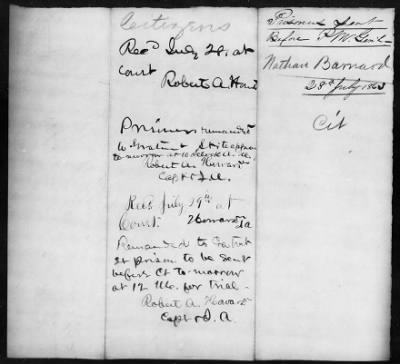 Citizens
Recd July 28, at
Court
Robert A. Howard
Prisoners remanded
to Gratiot St to appear
to-morrow at 10 o'clock A. M.
Robert A. Howard
Capt & J.A.
Recd July 29th at
Court. Howard
JA
Remanded to Gratiot
St prison to be sent
before Ct to-morrow
at 12 M. for trial-
Robert A. Howard
Capt & J. A.
Prisoner sent
Before P.M. Genl
Nathan Barnard
28th July 1863
Cit